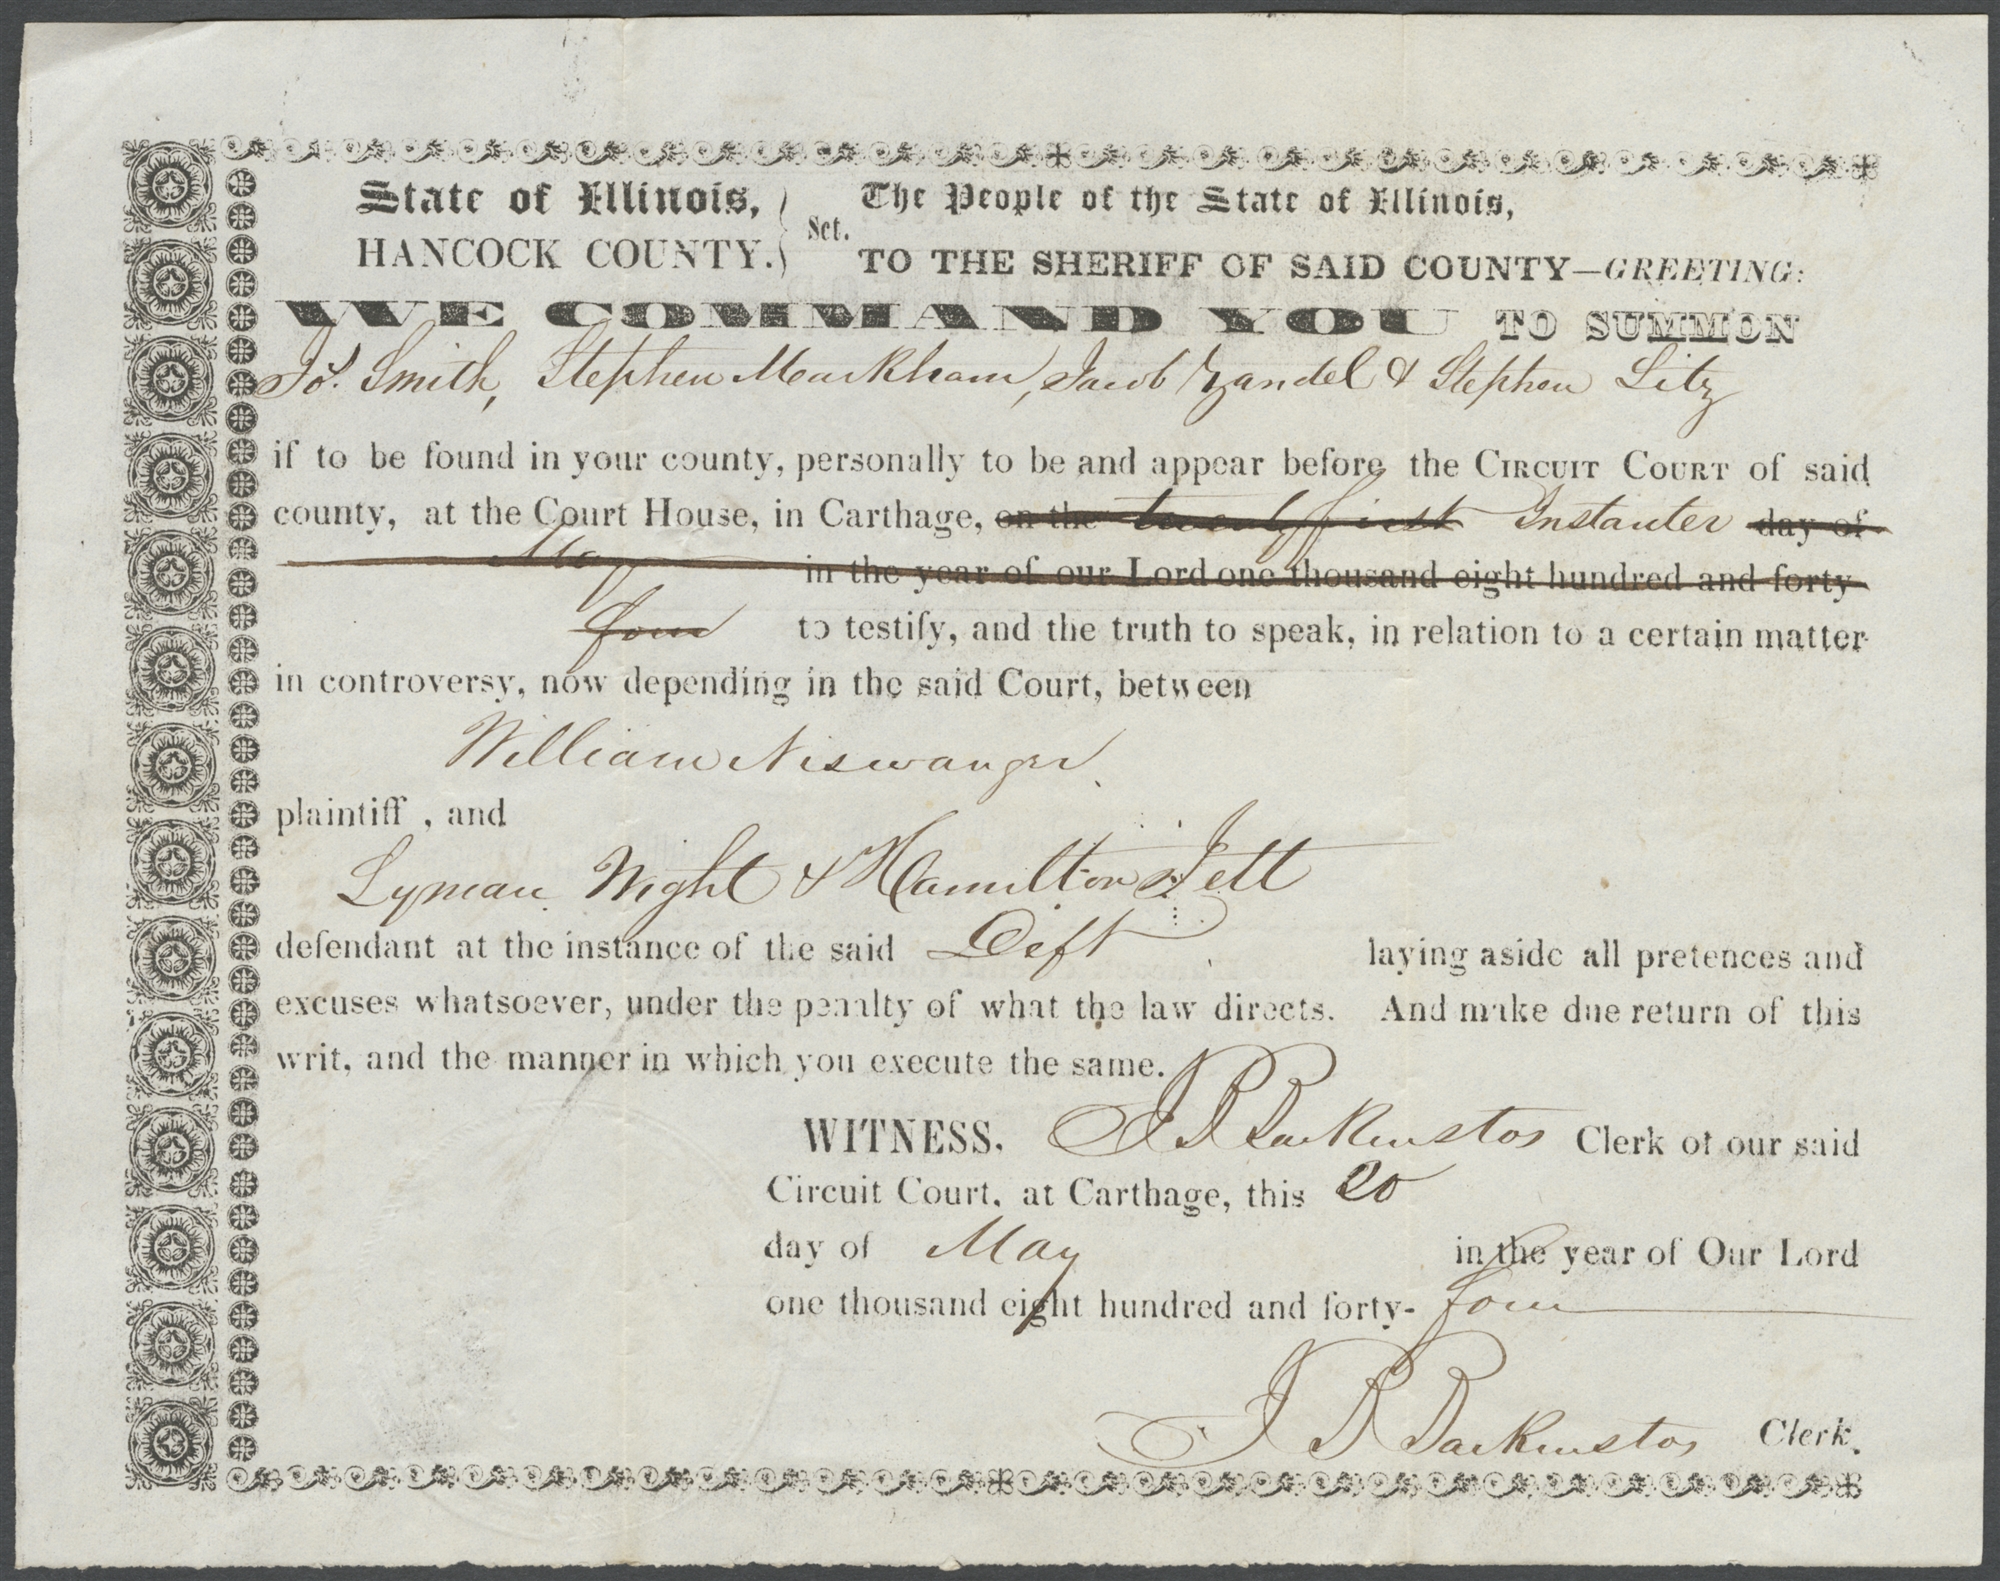 State of Illinois,
HANCOCK COUNTY.
Sct.
The People of the State of Illinois,
TO THE SHERIFF OF SAID COUNTY—GREETING:
WE COMMAND YOU TO SUMMON
Jos. Smith, Stephen Markham, Jacob Zandel & Stephen Litz
if to be found in your county, personally to be and appear before the CIRCUIT COURT of said
county, at the Court House, in Carthage, on the twenty first Instanter day of
May in the year of our Lord one thousand eight hundred and forty
four to testify, and the truth to speak, in relation to a certain matter
in controversy, now depending in the said Court, between
William Niswanger
plaintiff , and
Lyman Wight & Hamilton Jett
defendant at the instance of the said Deft laying aside all pretences and
excuses whatsoever, under the penalty of what the law directs. And make due return of this
writ, and the manner in which you execute the same.
WITNESS, J B Backenstos Clerk of our said
Circuit Court, at Carthage, this 20
day of May in the year of Our Lord
one thousand eight hundred and forty- four
J B Backenstos Clerk.